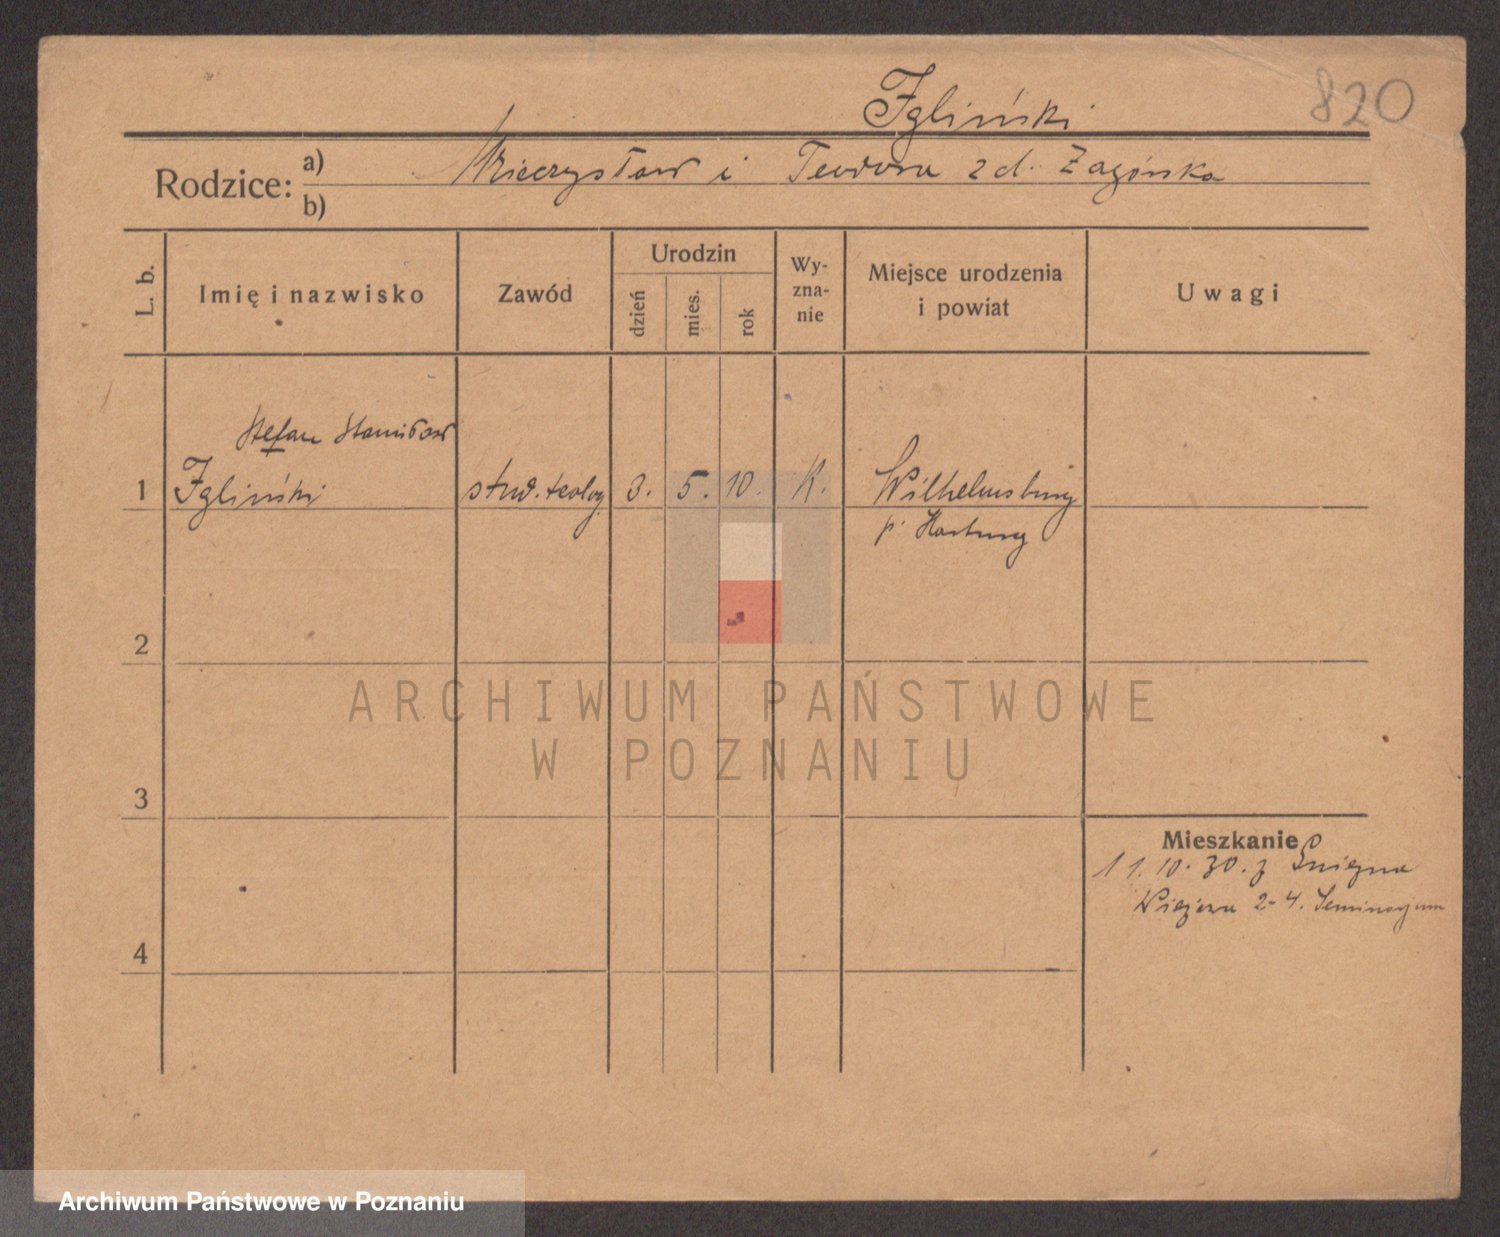 820
Igliński
Rodzice: a) Mieczysław i Teodora z d. Zagórska
b)
L. b.
Imię i nazwisko
Zawód
Urodzin
dzień
mies.
rok
Wy-
zna-
nie
Miejsce urodzenia
i powiat
Uwagi
Stefan Stanisław
1 Igliński stud. teolog 3. 5. 10. K. Wilhelmsburg
p. Harburg
2
3
4
Mieszkanie
11.10.30. z Gniezna
Wieżowa 2-4. Seminarjum
ARCHIWUM PAŃSTWOWE
W POZNANIU
Archiwum Państwowe w Poznaniu